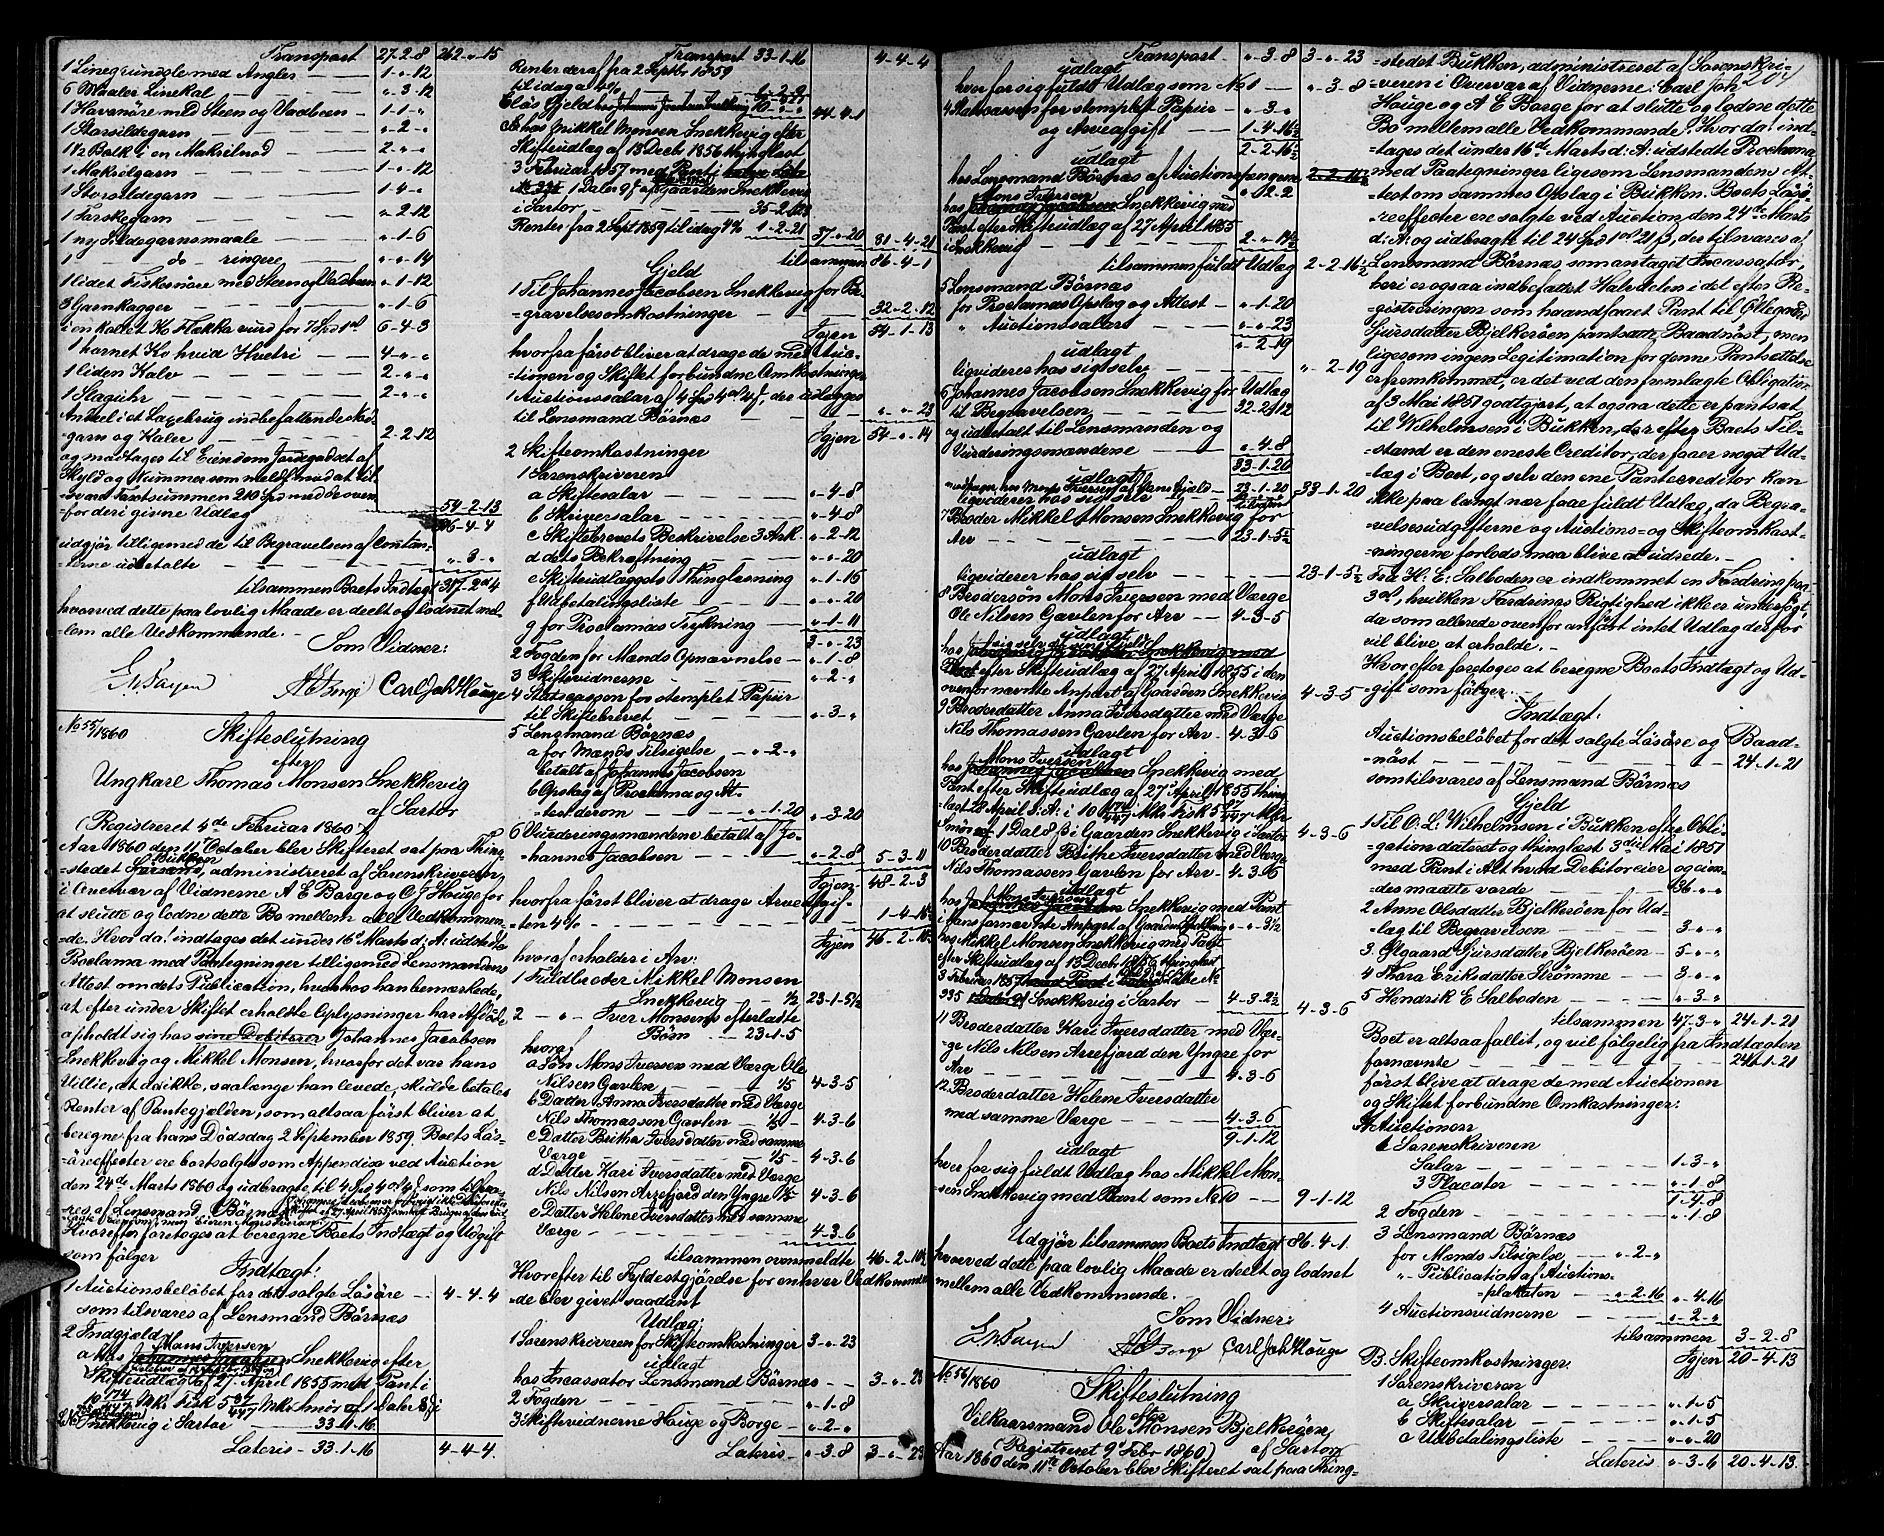 Transport 27-2-8 262-"-15
1 Linegrundsle med Angler — — "1-"-12
6 Maaler Linekal — — — "-3-12
1 Havsnöre med Steen og Vadbeen — 1-1-"
1 Storsildegarn — — — "-2-"
1 Makrelgarn — — — "-1-12
1 Storsildegarn — — — 1-4-"
1 Torskegarn — — — "-2-12
1 ny Sildegarnsmaale — — "-1-6
1 — do — ringere — — "-"-14
1 lidet Fiskesnöre med Steen og Vadbeen "-1-12
3 Garnkagger — — — "-1-6
en koldet Ko Flekka vurd for 7 Spd 1 ort 6-4-3
1 hornet Ko hvid Hvetri — — 4-"-"
1 liden Kalv — — — 2-"-"
1 Slaguhr — — — 2-"-"
Andeel i et Laxebrug indbefattende Not-
-garn og Kaler — — — 2-2-12
og modtages til Eiendom Jordegodset af
Skyld og Nummer som meldt imod at til-
-svare Taxtsummen 210 Spd med de oven-
-for deri givne Udlæg 54-2-13
86-4-4
udgjör tilligemed de til Begravelsen af Contan-
-terne udbetalte — — — "-3-"
tilsammen Boets Indtægt 317-2-4
hvorved dette paa lovlig Maade er deelt og lodnet mel-
-lem alle Vedkommende. —
Som Vidner:
A E Borge Carl Joh Houge
No 55/1860 Skifteslutning
efter
Ungkarl Thomas Monsen Snekkevig
af Sartor
(Registreret 4de Februar 1860)
Aar 1860 den 11te October blev Skifteret sat paa Thing-
-stedet Bukken, administreret af Sorenskriveren
i Overvær af Vidnerne A E Borge og C J Houge for
at slutte og lodne dette Bo mellem alle Vedkommen-
-de. Hvor da! indtages det under 16de Marts d: A: udstedte
Proclama med Paategninger tilligemed Lensmandens
Attest om dets Publication, hvorhos han bemærkede,
at efter under Skiftet erholdte Oplysninger har Afdöde
opholdt sig hos sine Debitorer Johannes Jacobsen
Snekkevig og Mikkel Monsen, hvorfor det var hans
Villie, at de ikke, saalænge han levede, skulde betale
Renter af Pantegjælden, som altsaa först bliver at
beregne fra hans Dödsdag 2 September 1859. Boets Lös-
-öreeffecter ere bortsolgte som Appendix ved Auction
den 24de Marts 1860 og udbragte til 4 Spd 4 ort 4 ß som tilsva-
res af Lensmand Börnæs
Hvorefter foretoges at beregne Boets Indtægt og Udgift
som fölger
Indtægt:
1 Auctionsbelöbet for det solgte Lösöre — 4-4-4
som tilsvares af Lensmand Börnæs
2 Indgjæld
a hos Mons Iversen Snekkevig efter
Skifteudlæg af 27 April 1855 med Pant i
10 174/447 Mkr Fisk 5 97/447 Mkr Smör af 1 Daler 8 ß i
Snekkevig i Sartor — 33-1-16
Lateris — 33-1-16 4-4-4.
Transport 33-1-16 4-4-4
Renter deraf fra 2 Septbr 1859
til idag a 4%
44-4-1
c hos Mikkel Monsen Snekkevig efter
Skifteudlæg af 13 Decbr 1856 thinglæst
3 Februar 1857 med Pant i
1 Daler 9 ß af Gaarden Snekkevig
i Sartor — — —
Renter fra 2 Sept 1859 til idag 4% 1-2-21
37-"-20 81-4-21
tilsammen 86-4-1
Gjeld
1 Til Johannes Jacobsen Snekkevig for Be-
-gravelsesomkostninger — — 32-2-12
Igjen 54-1-13
hvorfra först bliver at drage de med Auc-
-tionen og Skiftet forbundne Omkostninger
1 Auctionssalar af 4 Spd 4 ort 4 ß, der udlægges
til Lensmand Börnæs — — "-"-23
Igjen 54-"-14
2 Skifteomkostninger
1 Sorenskriveren
a Skiftesalar — — "-4-8
b Skriversalar — — "-4-8
c Skiftebrevets Beskrivelse 3 Ark. "-2-12
d dets Bekræftning — — "-"-20
e Skifteudlæggets Thinglæsning "-1-16
f Udbetalingsliste — — "-"-20
g for Proclamas Trykning — "-1-11
3-"-23
2 Fogden for Mænds Opnævnelse — "-1-8
3 Skiftevidnerne — — "-2-"
4 Statscassen for stemplet Papir
til Skiftebrevet — — "-3-"
5 Lensmand Börnæs
a for Mænds Tilsigelse — "-2-"
betalt af Johannes Jacobsen
b Opslag af Proclama og At-
-test derom — "-1-20 "-3-20
6 Vurderingsmændene betalt af Jo-
-hannes Jacobsen — — "-2-8 5-3-11
Igjen 48-2-3
hvorfra först bliver at drage Arveafgif-
-ten 4% 1-4-16½
Igjen 46-2-10½
hvoraf erholder i Arv:
1 Fuldbroder Mikkel Monsen
Snekkevig — ½ 23-1-5½
2 — " — Iver Monsens efterladte
Börn — 23-1-5
hvoraf
a Sön Mons Iversen med Værge Ole
Nilsen Gavlen — 1/5 4-3-5
b Datter Anna Iversdatter med Værge
Nils Thomassen Gavlen — 1/5 4-3-6
c Datter Brithe Iversdatter med samme
Værge — 1/5 4-3-6
d Datter Kari Iversdatter med Værge
Nils Nilsen Arrefjord den Yngre 1/5 4-3-6
e Datter Helene Iversdatter med samme
Værge — 4-3-6
tilsammen ovenmeldte 46-2-10½
Hvorefter til Fyldestgjörelse for enhver Vedkommen-
-de blev givet saadant
Udlæg:
1 Sorenskriveren for Skifteomkostninger 3-"-23
udlagt
hos Incassator Lensmand Börnæs — 3-"-23
2 Fogden — — "-1-8
3 Skiftevidnerne Houge og Borge — "-2-"
Lateris — "-3-8 3-"-23
Transport — "-3-8 3-"-23
udlagt
hver for sig fuldt Udlæg som No 1 — "-3-8
4 Statscassen for stemplet Papir — "-3-"
og Arveafgift — — 1-4-16½
2-2-16½
udlagt
hos Lensmand Börnæs af Auctionspengene "-"-2-2
hos Mons Iversen Snekkevig med
Pant efter Skifteudlæg af 27 April 1855
i Snekkevig — — 2-"-14½
tilsammen fuldt Udlæg 2-2-16½
5 Lensmand Börnæs
for Proclamas Opslag og Attest — "-1-20
" Auctionssalar — — "-"-23
"-2-19
udlagt
ligviderer hos sig selv — — "-2-19
6 Johannes Jacobsen Snekkevig for Udlæg
til Begravelsen — — 32-2-12
og udbetalt til Lensmanden og
Vurderingsmændene — — "-4-8
33-1-20
udlagt
33-1-20 33-1-20
7 Broder Mikkel Monsen Snekkevig for
Arv — — — 23-1-5½
udlagt
ligviderer hos sig selv — — 23-1-5½
8 Brodersön Mons Iversen med Værge
Ole Nilsen Gavlen for Arv — 4-3-5
udlagt
efter Skifteudlæg af 27 April 1855 i den
ovenfor nævnte Anpart af Gaarden Snekkevig 4-3-5
9 Broderdatter Anna Iversdatter med Værge
Nils Thomassen Gavlen for Arv — 4-3-6
udlagt
hos Mons Iversen Snekkevig med
Pant efter Skifteudlæg af 27 April 1855 thing-
læst 28 April s: A: i 10 174/447 Mkr Fisk 5 97/447 Mkr
Smör af 1 Dal 8 ß i Gaarden Snekkevig i Sartor 4-3-6
10 Broderdatter Brithe Iversdatter med Værge
Nils Thomassen Gavlen for Arv 4-3-6
udlagt
hos Mons Iversen Snekkevig med Pant
i Mons fornævnte Anpart af Gaarden Snekkevig "-"-3½
hos Mikkel Monsen Snekkevig med Pant
efter Skifteudlæg af 13 Decbr 1856 thinglæst
3 Februar 1857
935 Snekkevig i Sartor — 4-3-2½
4-3-6
11 Broderdatter Kari Iversdatter med Vær-
-ge Nils Nilsen Arrefjord den Yngre for
Arv — — — 4-3-6
12 Broderdatter Helene Iversdatter
med samme Værge — — 4-3-6
9-1-12
udlagt
hver for sig fuldt Udlæg hos Mikkel Mon-
-sen Snekkevig med Pant som No 10 — 9-1-12
Udgjör tilsammen Boets Indtægt 86-4-1.
hvorved dette paa lovlig Maade er deelt og lodnet
mellem alle Vedkommende. —
Som Vidner:
A E Borge Carl Joh Houge
No 56/1860 Skifteslutning
efter
Vilkaarsmand Ole Monsen Bjelkeröen
(Registreret 9de Febr 1860) af Sartor
Aar 1860 den 11te October blev Skifteret sat paa Thing-
204
-stedet Bukken, administreret af Sorenskri-
-veren i Overvær af Vidnerne: Carl Joh
Houge og A E Borge for at slutte og lodne dette
Bo mellem alle Vedkommende. Hvor da! ind-
-tages det under 16de Marts d: A: udstedte Proclama
med Paategninger ligesom Lensmandens At-
-test om sammes Opslag i Bukken. Boets Lösö-
-reeffecter ere solgte ved Auction den 24de Marts
d: A: og udbragte til 24 Spd 1 ort 21 ß, der tilsvares af
Lensmand Börnæs som antaget Incassator,
heri er ogsaa indbefattet Halvdelen i det efter Re-
-gistreringen som haandfaaet Pant til Ölegaard
Gjursdatter Bjelkeröen pantsatte Baadnöst, men
ligesom ingen Legitimation for denne Pantsættelse
er fremkommet, er det ved den fremlagte Obligation
af 3 Mai 1851 godtgjort, at ogsaa dette er pantsat
til Wilhelmsen i Bukken, der efter Boets Til-
-stand er den eneste Creditor, der faaer noget Ud-
-læg i Boet, og selv den ene Pantecreditor kan
ikke paa langt nær faae fuldt Udlæg, da Begra-
-velsesudgifterne og Auctions- og Skifteomkost-
-ningerne forlods maa blive at udrede. —
Fra H: E: Solboden er indkommet en Fordring paa
3 ort, hvilken Fordrings Rigtighed ikke er undersögt,
da som allerede ovenfor anfört intet Udlæg derfor
vil blive at erholde. —
Hvorefter foretoges at beregne Boets Indtægt og Ud-
-gift som fölger:
Indtægt:
Auctionsbelöbet for det solgte Lösöre og Baad-
-nöst — — — 24-1-21
som tilsvares af Lensmand Börnæs
Gjeld
1 Til O: L: Wilhelmsen i Bukken efter Obli-
-gation dateret og thinglæst 3die Mai 1851
med Pant i Alt hvad Debitor eier og eien-
-des maatte vorde — 36-"-"
2 Anne Olsdatter Bjelkeröen for Ud-
-læg til Begravelsen — 3-"-"
3 Ølgaard Gjursdatter Bjelkeröen — 5-"-"
4 Thora Eriksdatter Strömme — 3-"-"
5 Hendrik E Solboden — "-3-"
tilsammen 47-3-" 24-1-21
Boet er altsaa fallit, og vil fölgelig fra Indtægten
fornævnte — — 24-1-21
först blive at drage de med Auctionen
og Skiftet forbundne Omkostninger:
A. Auctionen
1 Sorenskriveren
Salar — — 1-3-"
3 Placater — "-1-8
1-4-8
2 Fogden — — "-1-8
3 Lensmand Börnæs
for Mænds Tilsigelse — "-2-"
"- Publication af Auctions-
-plakaten — "-2-16 "-4-16
4 Auctionsvidnerne — "-2-"
tilsammen 3-2-8
B. Skifteomkostninger. Igjen 20-4-13
1 Sorenskriveren
a. Skriversalar — — "-1-5
b. Skiftesalar — — "-1-5
c Udbetalingsliste — — "-"-20
Lateris "-3-6 20-4-13.